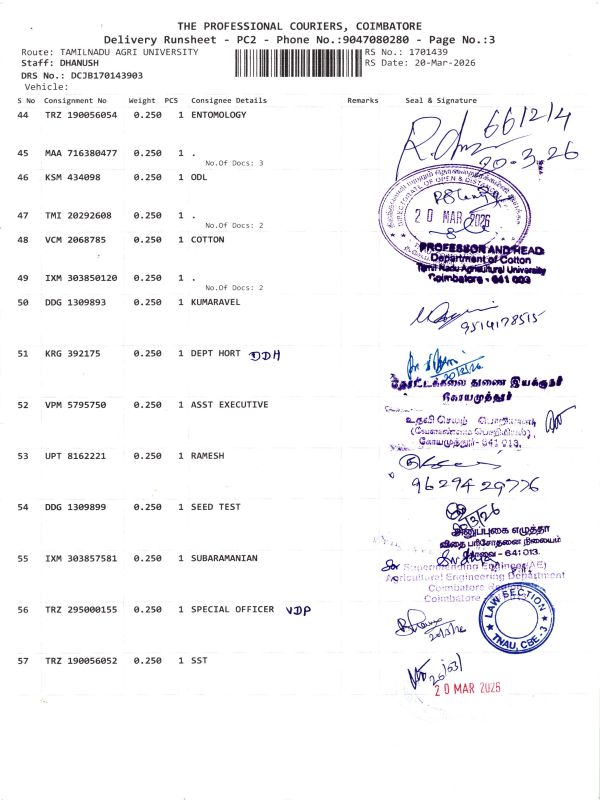 THE PROFESSIONAL COURIERS, COIMBATORE
Delivery Runsheet - PC2 - Phone No.:9047080280 - Page No.:3
Route: TAMILNADU AGRI UNIVERSITY RS No.: 1701439
Staff: DHANUSH RS Date: 20-Mar-2026
DRS No.: DCJB170143903
Vehicle:
S No Consignment No Weight PCS Consignee Details Remarks Seal & Signature
44 TRZ 190056054 0.250 1 ENTOMOLOGY
66/2/4
20-3.26
45 MAA 716380477 0.250 1 .
No.Of Docs: 3
46 KSM 434098 0.250 1 ODL
DIRECTORATE OF OPEN & DISTANCE
20 MAR 2026
47 TMI 20292608 0.250 1 .
No.Of Docs: 2
48 VCM 2068785 0.250 1 COTTON
PROFESSOR AND HEAD
Department of Cotton
Tamil Nadu Agricultural University
Coimbatore - 641 003
49 IXM 303850120 0.250 1 .
No.Of Docs: 2
50 DDG 1309893 0.250 1 KUMARAVEL
9514178515
51 KRG 392175 0.250 1 DEPT HORT DDH
20/3/26
தோட்டக்கலை துணை இயக்குநர்
கோயமுத்தூர்
52 VPM 5795750 0.250 1 ASST EXECUTIVE
உதவி செயற் பொறியாளர்
(வேளாண்மைப் பொறியியல்),
கோயமுத்தூர் - 641 013.
53 UPT 8162221 0.250 1 RAMESH
9629429776
54 DDG 1309899 0.250 1 SEED TEST
விதை பரிசோதனை நிலையம்
- 641 013.
55 IXM 303857581 0.250 1 SUBARAMANIAN
Superintending Engineer(AE)
Agricultural Engineering Department
Coimbatore
Coimbatore
56 TRZ 295000155 0.250 1 SPECIAL OFFICER VDP
20/3/26
LAW SECTION
TNAU, CBE - 3
57 TRZ 190056052 0.250 1 SST
20 MAR 2026